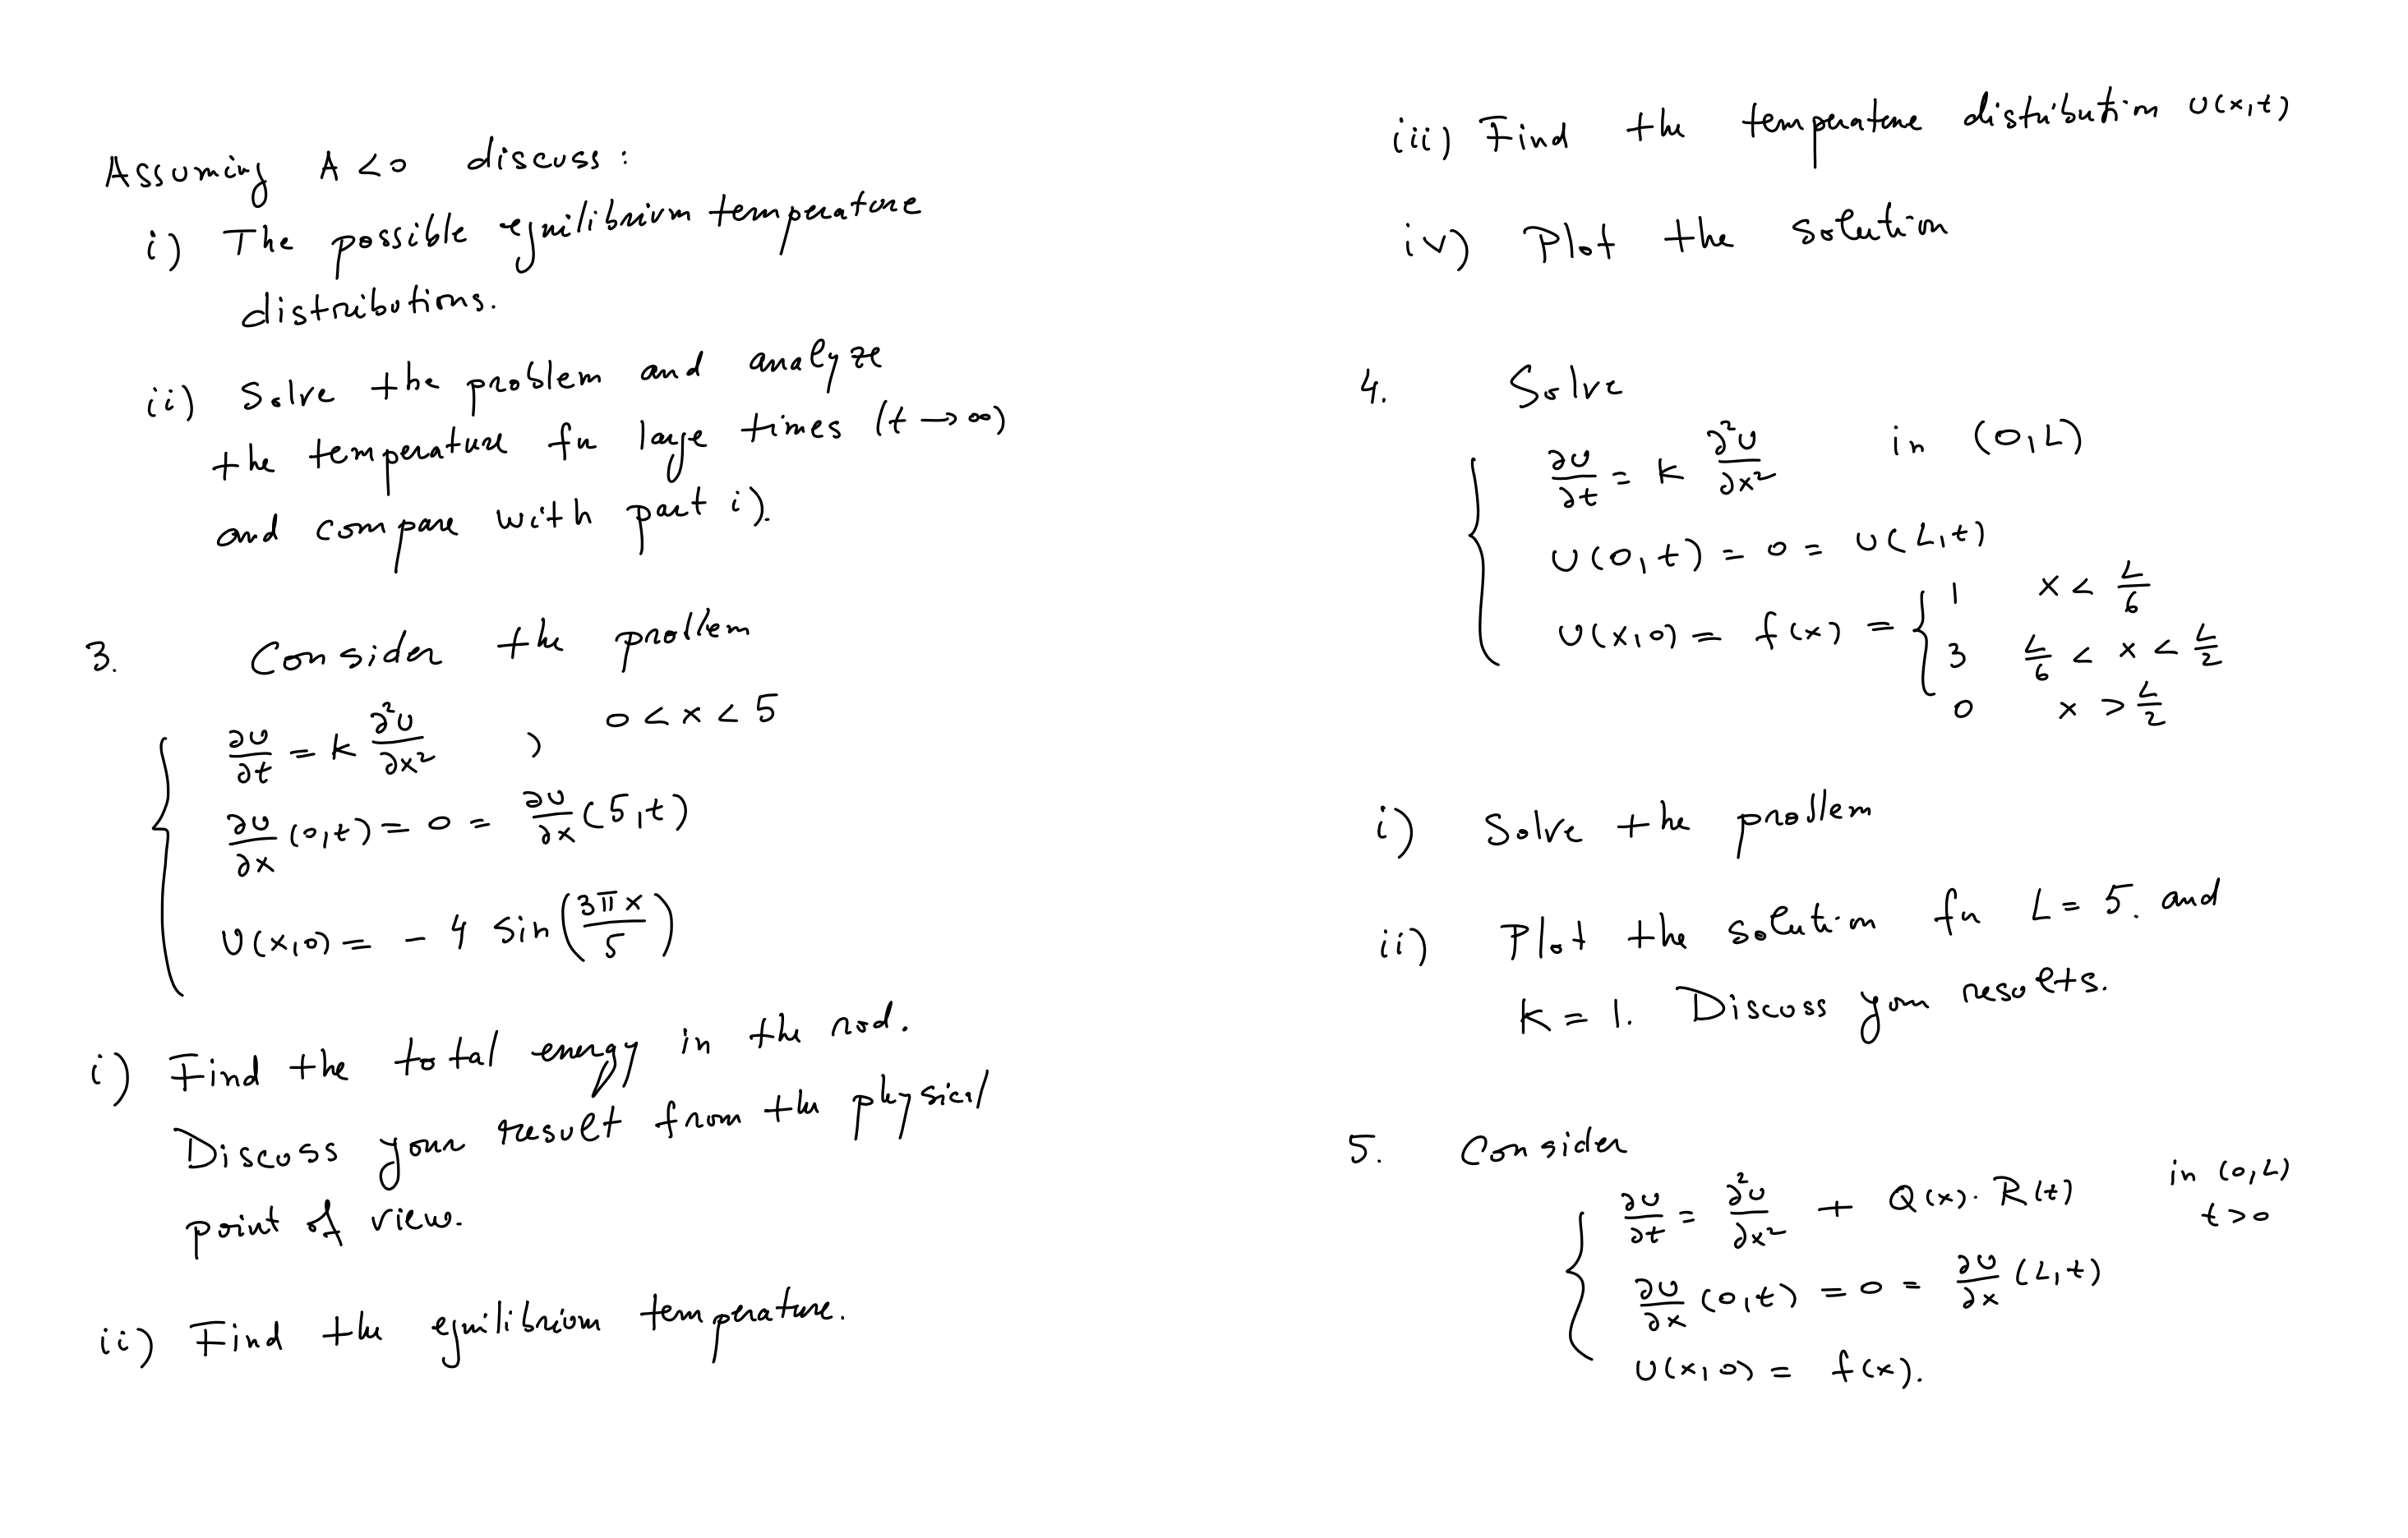 Assuming A < 0 discuss:
i) The possible equilibrium temperature
distributions.
ii) Solve the problem and analyze
the temperature for large times (t → ∞)
and compare with part i).
3. Consider the problem
∂u/∂t = k ∂²u/∂x² , 0 < x < 5
∂u/∂x (0,t) = 0 = ∂u/∂x (5,t)
u(x,0) = - 4 sin(3πx/5)
i) Find the total energy in the rod.
Discuss your result from the physical
point of view.
ii) Find the equilibrium temperature.
iii) Find the temperature distribution u(x,t)
iv) Plot the solution
4. Solve
∂u/∂t = k ∂²u/∂x² in (0,L)
u(0,t) = 0 = u(L,t)
u(x,0) = f(x) = { 1 x < L/6
3 L/6 < x < L/2
0 x > L/2
i) Solve the problem
ii) Plot the solution for L = 5. and
k = 1. Discuss your results.
5. Consider
∂u/∂t = ∂²u/∂x² + Q(x)·R(t) in (0,L)
t > 0
∂u/∂x (0,t) = 0 = ∂u/∂x (L,t)
u(x,0) = f(x).